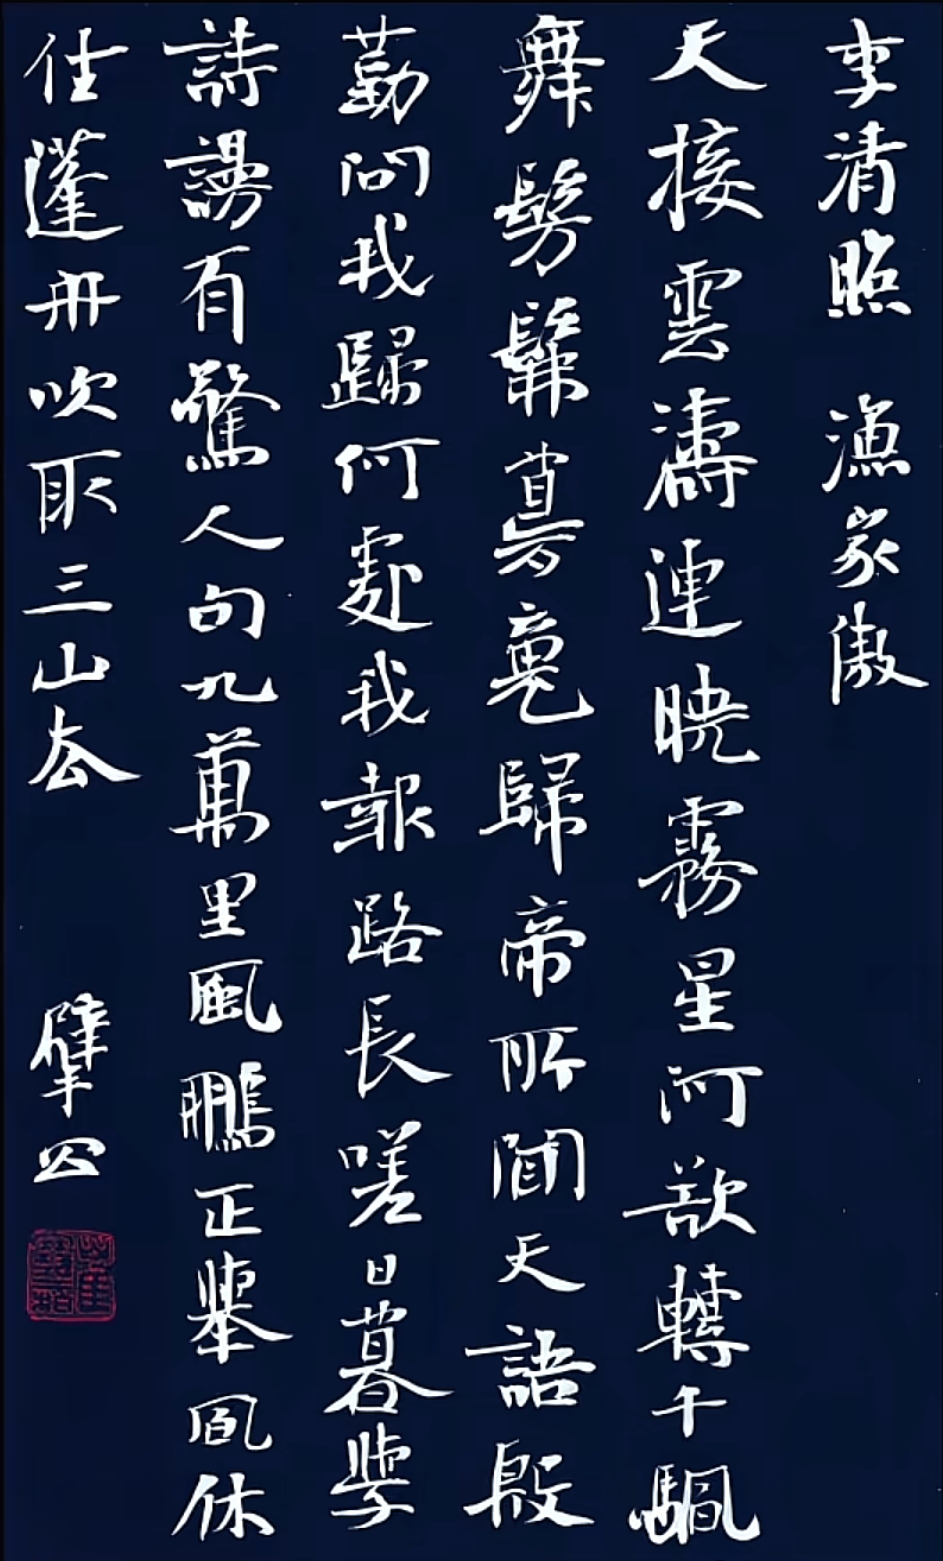 李清照 漁家傲
天接雲濤連曉霧星河欲轉千颿
舞髣髴夢魂歸帝所聞天語殷
勤問我歸何處我報路長嗟日暮學
詩謾有驚人句九萬里風鵬正舉風休
住蓬舟吹取三山去
擘公